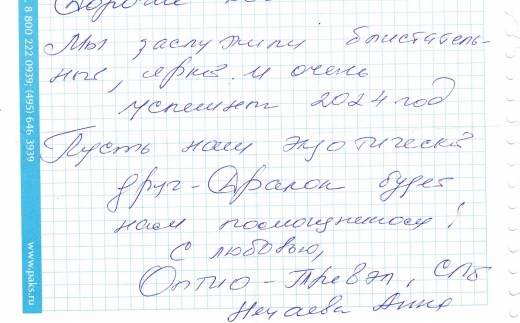 Дорогие
Мы заслужили блистатель-
ный, яркий и очень
успешный 2024 год
Пусть наш экзотический
друг-Дракон будет
нам помощником!
С любовью,
Оптио-Трэвэл, СПб
Нечаева Анна
8 800 222 0939; (495) 646 3939
www.paks.ru